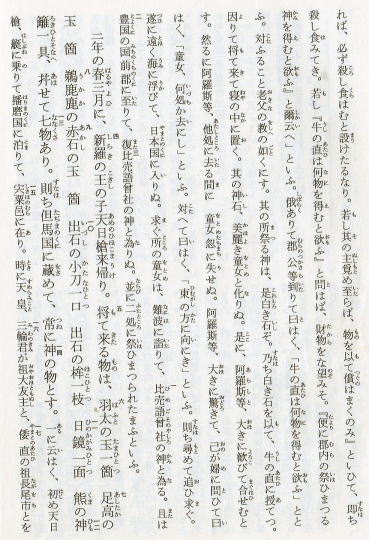 れば、必ず殺し食はむと設けたるなり。若し其の主覓め至らば、物を以て償はまくのみ』といひて、即ち
殺し食みてき。若し『牛の直は何物を得むと欲ふ』と問はば、財物をな望みそ。『便に郡内の祭ひまつる
神を得むと欲ふ』と爾云へ」といふ。俄ありて郡公等到りて曰はく、「牛の直は何物を得むと欲ふ」とと
ふ。対ふること老父の教の如くにす。其の所祭る神は、是白き石ぞ。乃ち白き石を以て、牛の直に授てつ。
因りて将て来て寝の中に置く。其の神石、美麗き童女と化りぬ。是に、阿羅斯等、大きに歓びて合せむと
す。然るに阿羅斯等、他処に去る間に、童女忽に失せぬ。阿羅斯等、大きに驚きて、己が婦に問ひて曰
はく、「童女、何処か去にし」といふ。対へて曰はく、「東の方に向にき」といふ。則ち尋めて追ひ求ぐ。
遂に遠く海に浮びて、日本国に入りぬ。求ぐ所の童女は、難波に詣りて、比売語曾社の神と為る。且は
豊国の国前郡に至りて、復比売語曾社の神と為りぬ。並に二処に祭ひまつられたまふといふ。
三年の春三月に、新羅の王の子天日槍来帰り。将て来る物は、羽太の玉一箇・足高の
玉一箇・鵜鹿鹿の赤石の玉一箇・出石の小刀一口・出石の桙一枝・日鏡一面・熊の神
籬一具、幷せて七物あり。則ち但馬国に蔵めて、常に神の物とす。一に云はく、初め天日
槍、艇に乗りて播磨国に泊りて、宍粟邑に在り。時に天皇、三輪君が祖大友主と、倭直の祖長尾市とを